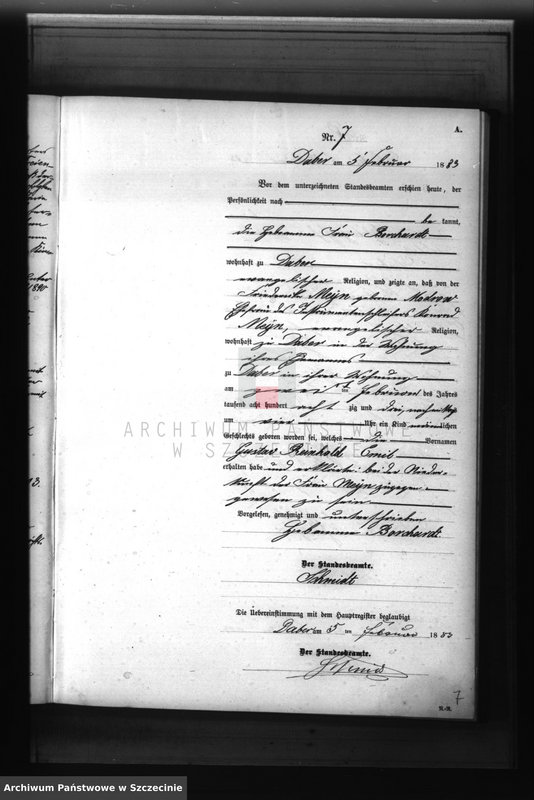 A.
Nr. 7
Daber am 5 Februar 1883
Vor dem unterzeichneten Standesbeamten erschien heute, der
Persönlichkeit nach
be kannt,
die Hebamme Frau Borchardt
wohnhaft zu Daber
evangelischer Religion, und zeigte an, daß von der
Meÿn geborene
Ehefrau des Konrad
Meÿn, evangelischer Religion,
wohnhaft zu Daber in der Wohnung
ihres Ehemannes
zu Daber in ihrer Wohnung
am zweiten Februar des Jahres
tausend acht hundert acht zig und drei, nachmittags
um vier Uhr ein Kind männlichen
Geschlechts geboren worden sei, welches die Vornamen
Gustav Reinhold Emil
erhalten habe und erklärte bei der Nieder-
kunft der Frau Meÿn zugegen
gewesen zu sein
Vorgelesen, genehmigt und unterschrieben
Hebamme Borchardt
Der Standesbeamte.
Schmidt
Die Uebereinstimmung mit dem Hauptregister beglaubigt
Daber am 5 ten Februar 1883
Der Standesbeamte.
Schmidt
7
ARCHIWUM PAŃSTWOWE
W SZCZECINIE
Archiwum Państwowe w Szczecinie